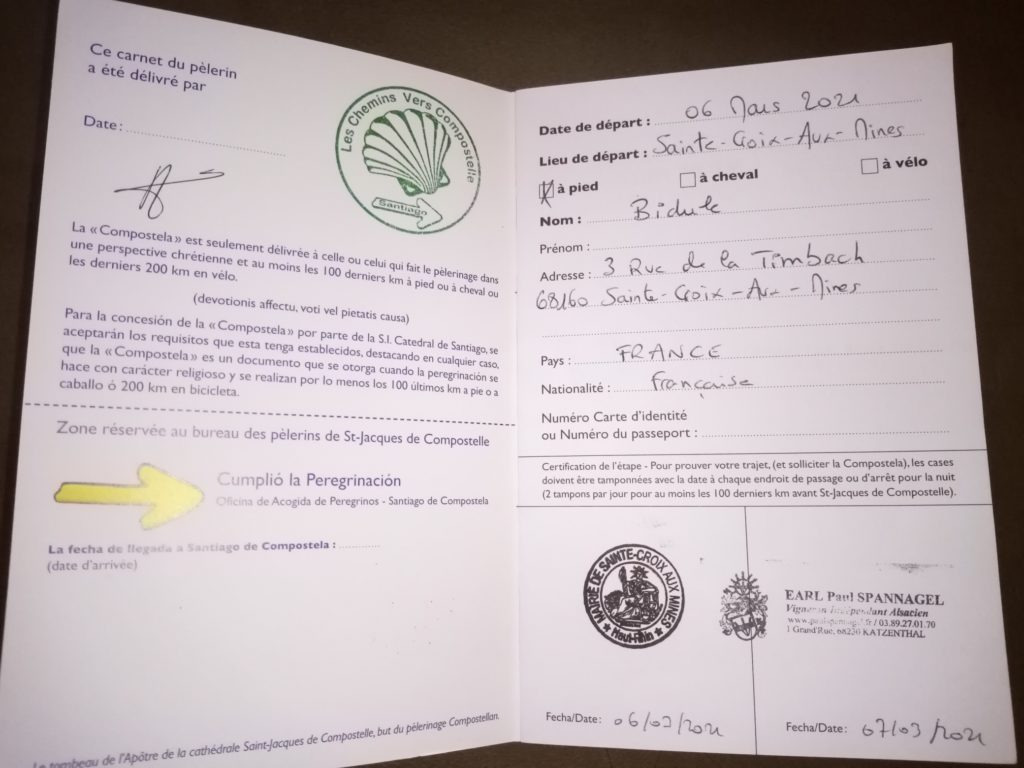 Ce carnet du pèlerin
a été délivré par
Date:
Les Chemins Vers Compostelle
Santiago
La « Compostela » est seulement délivrée à celle ou celui qui fait le pèlerinage dans
une perspective chrétienne et au moins les 100 derniers km à pied ou à cheval ou
les derniers 200 km en vélo.
(devotionis affectu, voti vel pietatis causa)
Para la concesión de la « Compostela » por parte de la S.I. Catedral de Santiago, se
aceptarán los requisitos que esta tenga establecidos, destacando en cualquier caso,
que la « Compostela » es un documento que se otorga cuando la peregrinación se
hace con carácter religioso y se realizan por lo menos los 100 últimos km a pie o a
caballo ó 200 km en bicicleta.
Zone réservée au bureau des pèlerins de St-Jacques de Compostelle
Cumplió la Peregrinación
Oficina de Acogida de Peregrinos - Santiago de Compostela
La fecha de llegada a Santiago de Compostela :
(date d'arrivée)
Le tombeau de l'Apôtre de la cathédrale Saint-Jacques de Compostelle, but du pèlerinage Compostellan.
Date de départ : 06 Mars 2021
Lieu de départ : Sainte-Croix-Aux-Mines
à pied à cheval à vélo
Nom : Bidule
Prénom :
Adresse : 3 Rue de la Timbach
68160 Sainte-Croix-Aux-Mines
Pays : FRANCE
Nationalité : française
Numéro Carte d'identité
ou Numéro du passeport :
Certification de l'étape - Pour prouver votre trajet, (et solliciter la Compostela), les cases
doivent être tamponnées avec la date à chaque endroit de passage ou d'arrêt pour la nuit
(2 tampons par jour pour au moins les 100 derniers km avant St-Jacques de Compostelle).
MAIRIE DE SAINTE-CROIX AUX MINES
Haut-Rhin
Fecha/Date: 06/03/2021
EARL Paul SPANNAGEL
Vigneron indépendant Alsacien
/ 03.89.27.01.70
1 Grand'Rue, 68230 KATZENTHAL
Fecha/Date: 07/03/2021